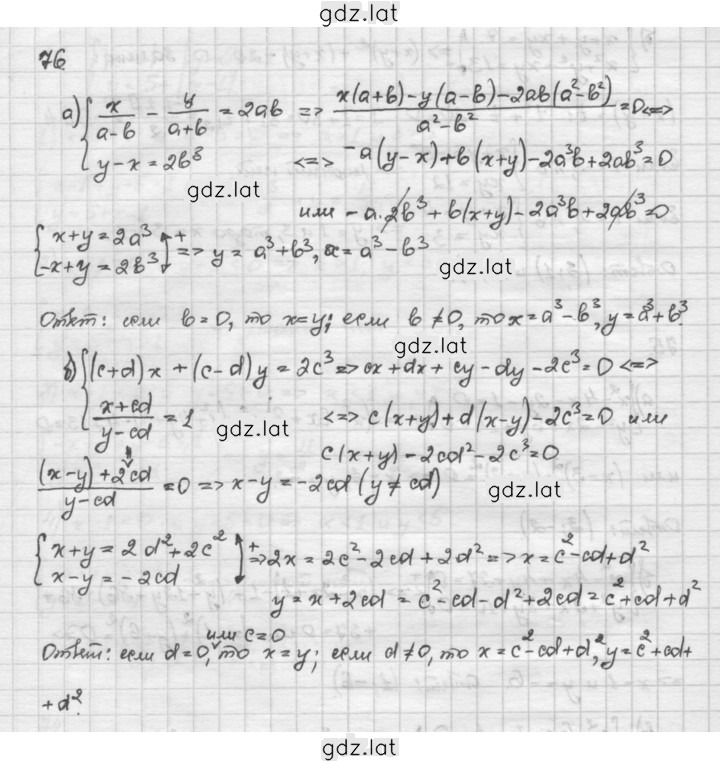 gdz.lat
76
а) { x/(a-b) - y/(a+b) = 2ab => (x(a+b)-y(a-b)-2ab(a²-b²))/(a²-b²) = 0 <=>
y-x = 2b³ <=> -a(y-x)+b(x+y)-2a³b+2ab³=0
gdz.lat
или -a·2b³+b(x+y)-2a³b+2ab³=0
{ x+y=2a³
-x+y=2b³ + => y = a³+b³, x=a³-b³
gdz.lat
Ответ: если b=0, то x=y; если b≠0, то x=a³-b³, y=a³+b³
gdz.lat
б) { (c+d)x + (c-d)y = 2c³ => cx+dx+cy-dy-2c³=0 <=>
(x+cd)/(y-cd) = 1 <=> c(x+y)+d(x-y)-2c³=0 или
gdz.lat
c(x+y)-2cd²-2c³=0
((x-y)+2cd)/(y-cd) = 0 => x-y=-2cd (y≠cd)
gdz.lat
{ x+y=2d²+2c²
x-y=-2cd + => 2x=2c²-2cd+2d² => x=c²-cd+d²
y=x+2cd=c²-cd-d²+2cd=c²+cd+d²
Ответ: если d=0, или c=0 то x=y; если d≠0, то x=c²-cd+d², y=c²+cd+
+d².
gdz.lat